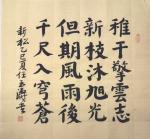 稚干擎雲志
新枝沐旭光
但期風雨後
千尺入穹蒼
新松 乙巳夏 任